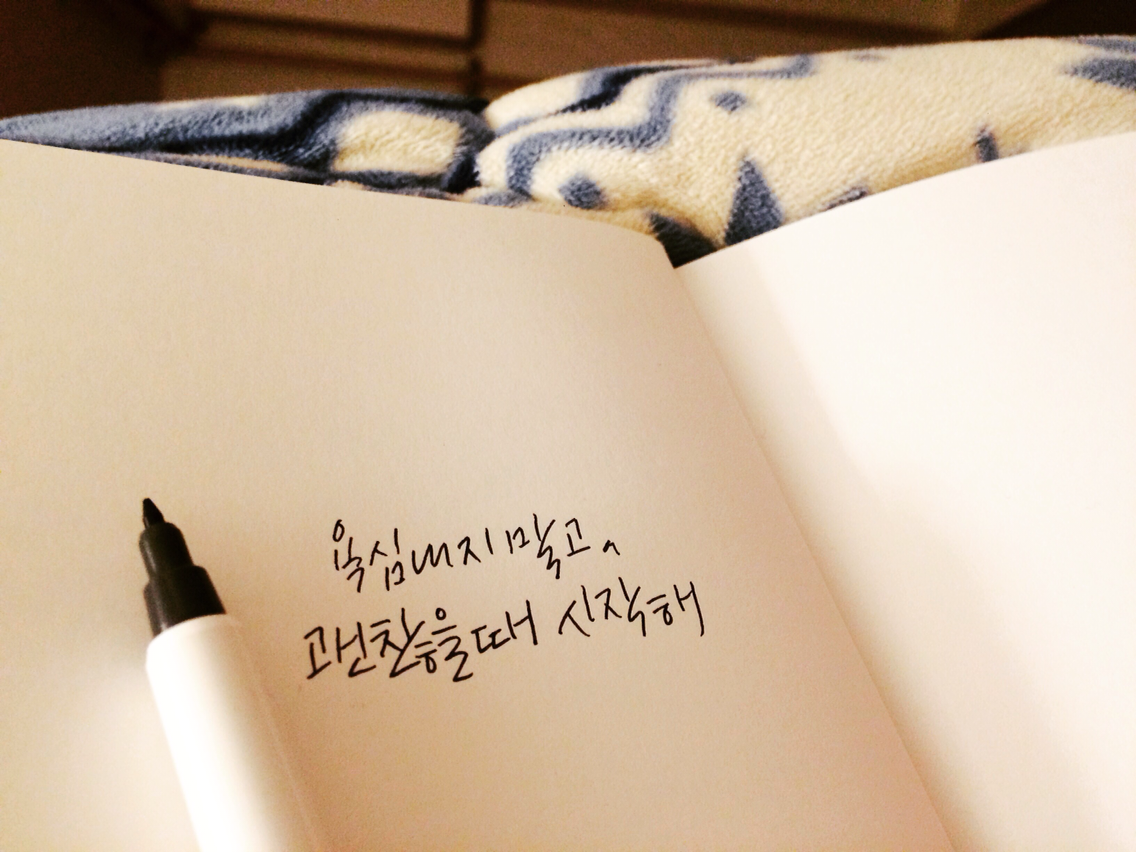 욕심내지 말고,
괜찮을때 시작해